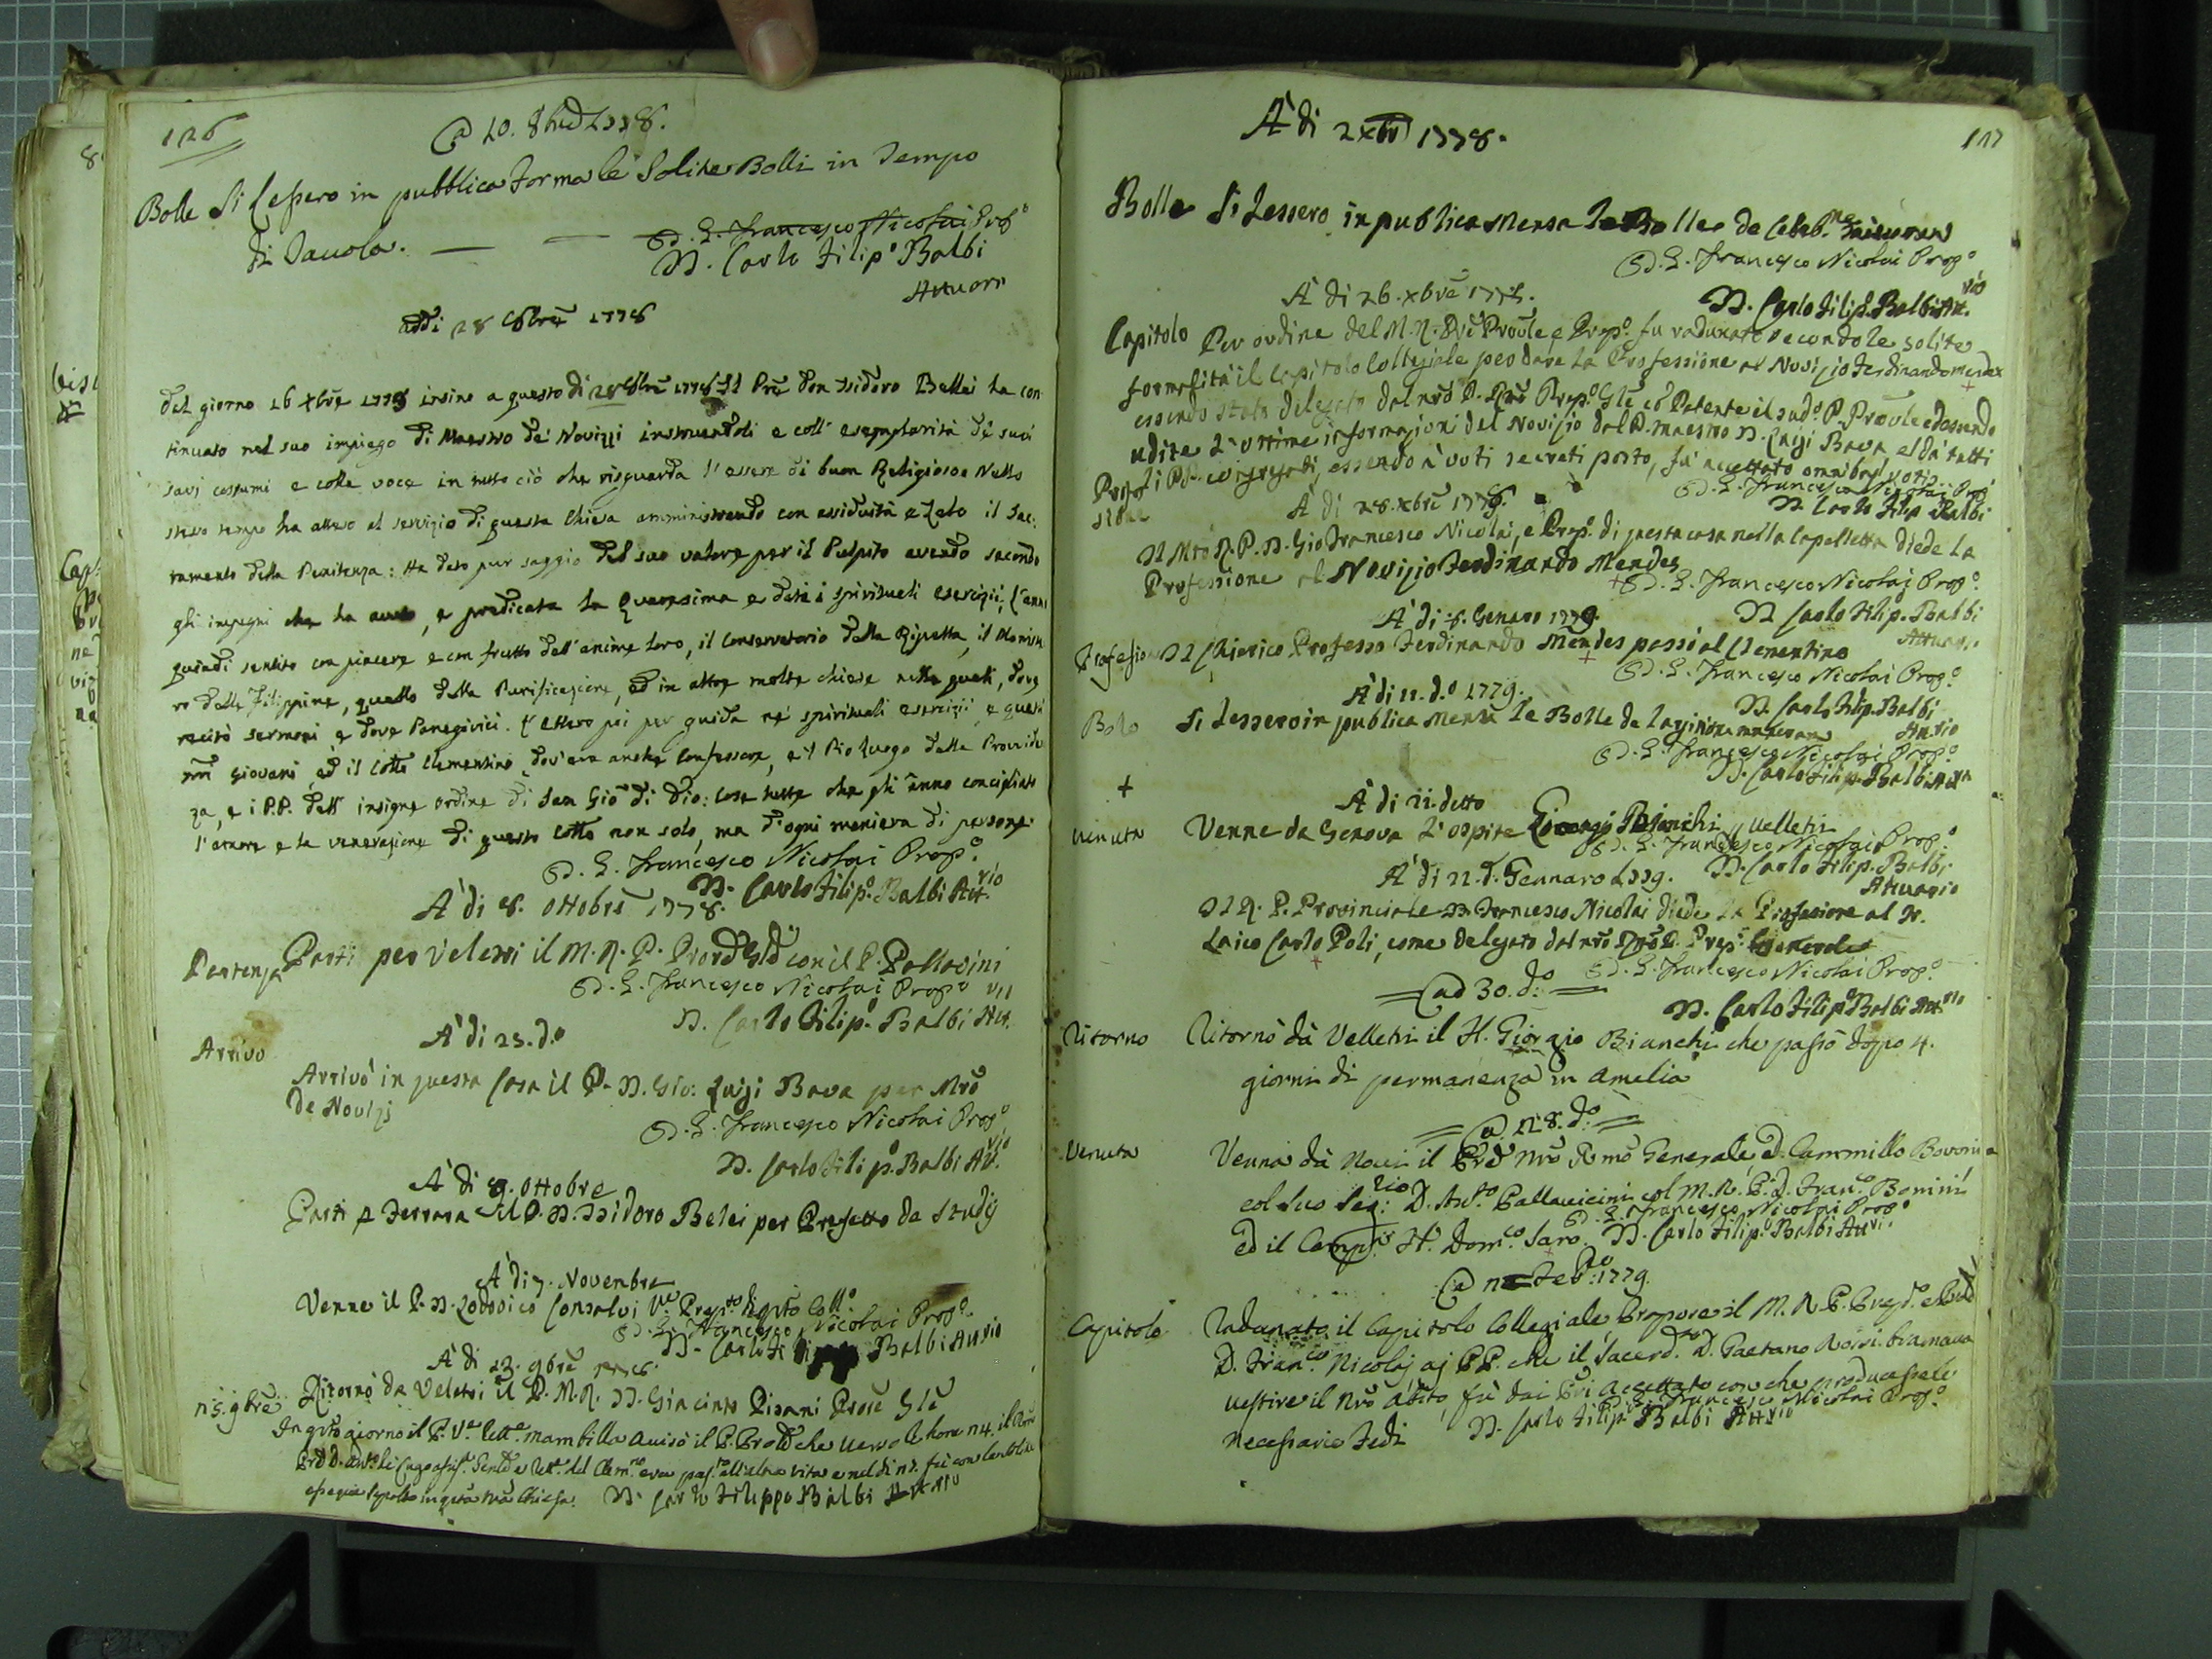 126
A 10. 8bre 1778.
Bolle Si lessero in pubblica forma le Solite Bolle in Tempo
di Tavola. D. G. Francesco Nicolai Prep.o
D. Carlo Filip.o Balbi
Attuario
addi 28 8bre 1778
Dal giorno 16 Xbre 1775 insino a questo di 28 8bre 1778 Il Pre Don Isidoro Bellei ha con
tinuato nel suo impiego di Maestro de' Novizzi instruendoli e coll' esemplarità de' suoi
savj costumi e colla voce in tutto ciò che risguarda l'essere di buon Religioso. Nello
stesso tempo ha atteso al servizio di questa Chiesa amministrando con assiduità e zelo il Sac.
ramento della Penitenza: Ha dato pur saggio del suo valore per il Pulpito avendo secondo
gli impegni che ha avuto, e predicata la Quaresima e dati i spirituali esercizii, l'anno
quindi sentito con piacere e con frutto dell'anime loro, il Conservatorio della Ripetta, il Moniste
ro delle Filippine, quello della Purificazione, ed in altre molte chiese nelle quali, dove
recitò sermoni e dove Panegirici. L'ebbero poi per guida ne' spirituali esercizii e questi
nri Giovani ed il Collo Clementino dov'era anche Confessore, e il Pio Luogo della Provviden
za, e i P.P. dell' insigne ordine di San Gio di Dio: cose tutte che gli anno conciliato
l'amore e la venerazione di questo Collo non solo, ma d'ogni maniera di persone.
D. G. Francesco Nicolai Prep.o
D. Carlo Filip.o Balbi Att.rio
A di 8. Ottobre 1778.
Partenza Partì per Veletri il M. R. P. Pror Gle con il P. Pallavini
D. G. Francesco Nicolai Prep.o
D. Carlo Filip.o Balbi Att.
A di 25. d.o
Arrivo
Arrivò in questa Casa il P. D. Gio: Luigi Bava per Mro
de Novizj
D. G. Francesco Nicolai Prep.o
D. Carlo Filip.o Balbi Att.rio
A di 9. Ottobre
Partì p Ferrara il P. D. Isidoro Belei per Prefetto de Studij
A di 7. Novembre
Venne il P. D. Lodovico Consalvi Ve Prep.to di qsto Coll.o
D. G. Francesco Nicolai Prep.o
D. Carlo Balbi Att.rio
A di 13. 9bre 1778
Ritornò da Veletri il P. M. R. D. Giacinto Pisani Prore Gle
n 15. 9bre In qsto giorno il P. Ve Lett.e Mambilla avisò il P. Prole che verso le hore n 4. il
era pas.to all'altra vita e nel di n fù con le solite
esequie sepolto in questa nra Chiesa. D. Carlo Filippo Balbi Att.rio
117
A di 2 Xbre 1778.
Bolle Si lessero in publica Mensa le Bolle de Celeb.ne
D. G. Francesco Nicolai Prep.o
D. Carlo Filip. Balbi Att.rio
A di 26. Xbre 1778.
Capitolo Per ordine del M. R. Pre Prole e Prep.o fu radunato secondo le solite
formalità il Capitolo Collegiale per dare la Professione al Novizio Ferdinando Mendez
essendo stato delegato dal nro P. Rmo Prep.o Gle cō Patente il sud.o P. Prole ed essendo
udite l'ottime informazioni del Novizio dal P. Maestro D. Luigi Bava, e da tutti
li PP. congregati, essendo à voti secreti posto, fù accettato omnibus votis
D. G. Francesco Nicolai Prep.
D. Carlo Filip. Balbi
Profes
sione A di 28. Xbre 1778.
Il Mto R. P. D. Gio Francesco Nicolai, e Prep.o di questa casa nella Capelletta diede la
Professione al Novizio Ferdinando Mendes
D. G. Francesco Nicolai Prep.o
D. Carlo Filip. Balbi
Attuario
A di 8. Genaro 1779.
Profession Il Chierico Professo Ferdinando Mendes passò al Clementino
D. G. Francesco Nicolai Prep.o
D. Carlo Filip. Balbi
Att.rio
A di 11. d.o 1779.
Bolo Si lessero in publica Mensa le Bolle de
D. G. Francesco Nicolai Prep.o
D. Carlo Filip. Balbi Att.rio
+
A di 21. detto
Venuta Venne da Genova l'ospite Giorgio Bianchi Velletri
D. G. Francesco Nicolai Prep.o
D. Carlo Filip. Balbi
Attuario
A di 22. d. Gennaro 1779.
Il R. P. Provinciale D. Francesco Nicolai diede la Professione al Fr.
Laico Carlo Poli, come delegato dal nro Rmo P. Prep. Generale
D. G. Francesco Nicolai Prep.o
D. Carlo Filip.o Balbi Att.rio
ad 30. d.o
Ritorno Ritornò dà Velletri il H. Giorgio Bianchi che passò dopo 4.
giorni di permanenza in Amelia
a 28. d.o
Venuta Venne dà Novi il Pre nro Rmo Generale D. Cammillo Bovoni
col suo Seg.rio D. Ant.o Pallavicini col M. R. P. D. Fran.co Bonini
ed il Comp. H. Dom.co Saro.
D. G. Francesco Nicolai Prep.o
D. Carlo Filip.o Balbi Att.rio
A n Feb.ro 1779.
Capitolo Radunato il Capitolo Collegiale Propose il M. R. P. Prep.o e Prole
D. Fran.co Nicolaj aj PP. che il Sacerd.te D. Gaetano Rossi bramava
vestire il nro Abito, fù dai Pri accettato con che producesse le
necessarie Fedi
D. G. Francesco Nicolai Prep.o
D. Carlo Filip. Balbi Att.rio